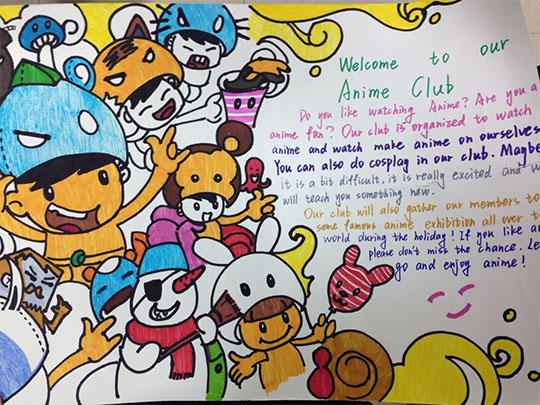 Welcome to our
Anime Club
Do you like watching Anime? Are you a
anime fun? Our club is organized to watch
anime and watch make anime on ourselves
You can also do cosplay in our club. Maybe
it is a bit difficult, it is really excited and w
will teach you something new.
Our club will also gather our members to
some famous anime exhibition all over t
world during the holiday! If you like an
please don't miss the chance. Le
go and enjoy anime!